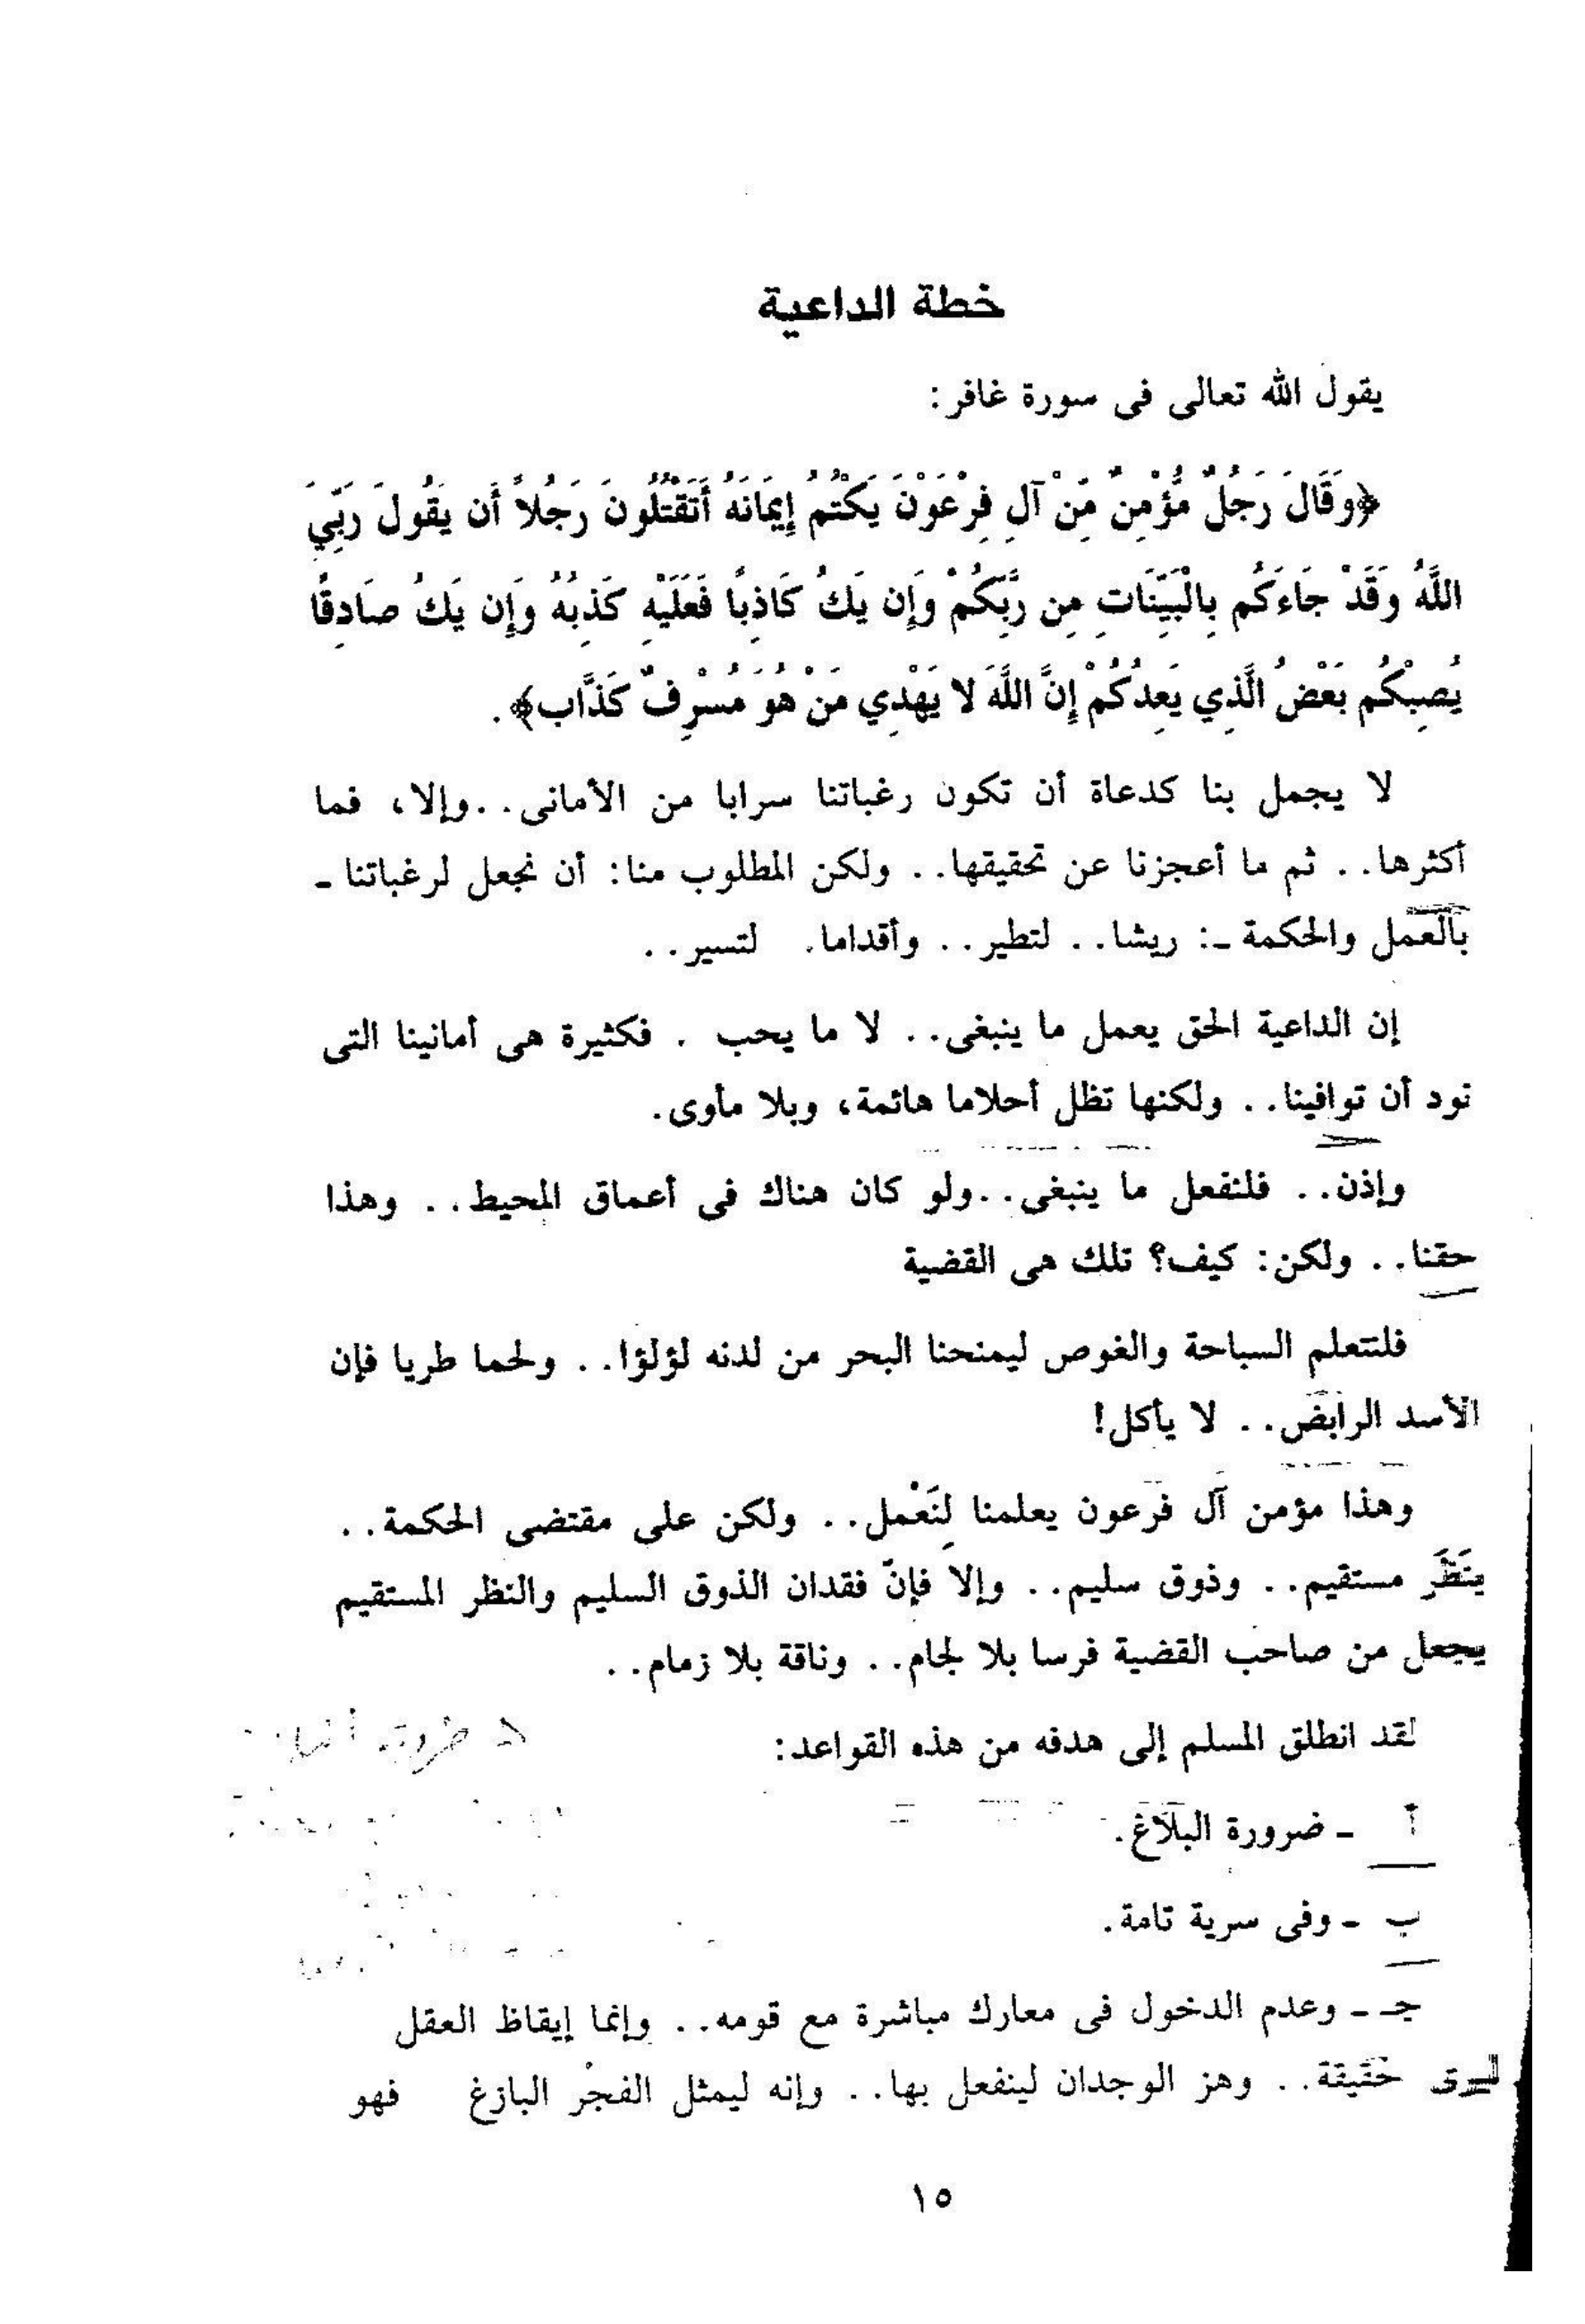 خطة الداعية
يقول الله تعالى فى سورة غافر:
﴿وَقَالَ رَجُلٌ مُّؤْمِنٌ مِّنْ آلِ فِرْعَوْنَ يَكْتُمُ إِيمَانَهُ أَتَقْتُلُونَ رَجُلاً أَن يَقُولَ رَبِّيَ
اللَّهُ وَقَدْ جَاءَكُم بِالْبَيِّنَاتِ مِن رَّبِّكُمْ وَإِن يَكُ كَاذِبًا فَعَلَيْهِ كَذِبُهُ وَإِن يَكُ صَادِقًا
يُصِبْكُم بَعْضُ الَّذِي يَعِدُكُمْ إِنَّ اللَّهَ لا يَهْدِي مَنْ هُوَ مُسْرِفٌ كَذَّاب﴾.
لا يجمل بنا كدعاة أن تكون رغباتنا سرابا من الأمانى.. وإلا، فما
أكثرها.. ثم ما أعجزنا عن تحقيقها.. ولكن المطلوب منا: أن نجعل لرغباتنا ـ
بالعمل والحكمة ـ: ريشا.. لتطير.. وأقداما. لتسير..
إن الداعية الحق يعمل ما ينبغى.. لا ما يحب . فكثيرة هى أمانينا التى
نود أن توافينا.. ولكنها تظل أحلاما هائمة، وبلا مأوى.
وإذن.. فلنفعل ما ينبغى.. ولو كان هناك فى أعماق المحيط.. وهذا
حقنا.. ولكن: كيف؟ تلك هى القضية
فلنتعلم السباحة والغوص ليمنحنا البحر من لدنه لؤلؤا.. ولحما طريا فإن
الأسد الرابض.. لا يأكل!
وهذا مؤمن آل فرعون يعلمنا لِنَعْمل.. ولكن على مقتضى الحكمة..
بنَظَر مستقيم.. وذوق سليم.. وإلا فإنّ فقدان الذوق السليم والنظر المستقيم
يجعل من صاحب القضية فرسا بلا لجام.. وناقة بلا زمام..
لقد انطلق المسلم إلى هدفه من هذه القواعد:
أ ـ ضرورة البلاغ.
ب ـ وفى سرية تامة.
جـ ـ وعدم الدخول فى معارك مباشرة مع قومه.. وإنما إيقاظ العقل
ليرى حقيقة.. وهز الوجدان لينفعل بها.. وإنه ليمثل الفجر البازغ فهو
١٥